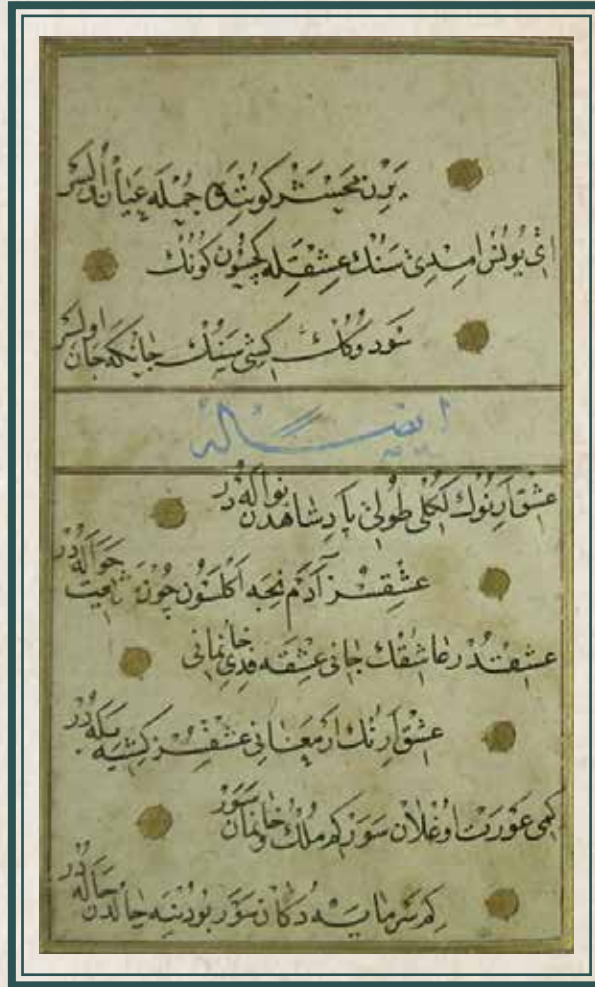 يَرِن مَحْشَر كُونِنْدَه جُمْلَه عَيَان اُولِسَر
اَىْ يُونُسْ اِمْدِى سَنُكْ عِشْقِلَه كَچْسُون كُونُكْ
سَوْدُوكُكْ كِشِى سَنِنُكْ جَانُكَه جَان اُولِسَر
ايضا له
عِشْقْ اَرِنُوكْ كُكْلِى طُولِى پَادِشَاهْدَنْ نَوَالَهْ دُرْ
عِشْقْسِزْ آدَمْ نِجَه اَكْلَسُونْ چُونْ
عِشْقْدُرْ عَاشِقُكْ جَانِى عِشْقَه فِدِىْ خَانْمَانِى
عِشْقْ اَرِنُكْ اَرْمَغَانِى عِشْقْسِزْ كِشِيَه
كِمِى عَوْرَتْ اُوغْلَانْ سَوَرْ كِمِ مُلْكْ وُ خَانْمَانْ سَوَرْ
كِمْ سَرْمَايَه دُكَّانْ سَوَرْ بُو دُنْيَه حَالْدَنْ حَالَه دُرْ